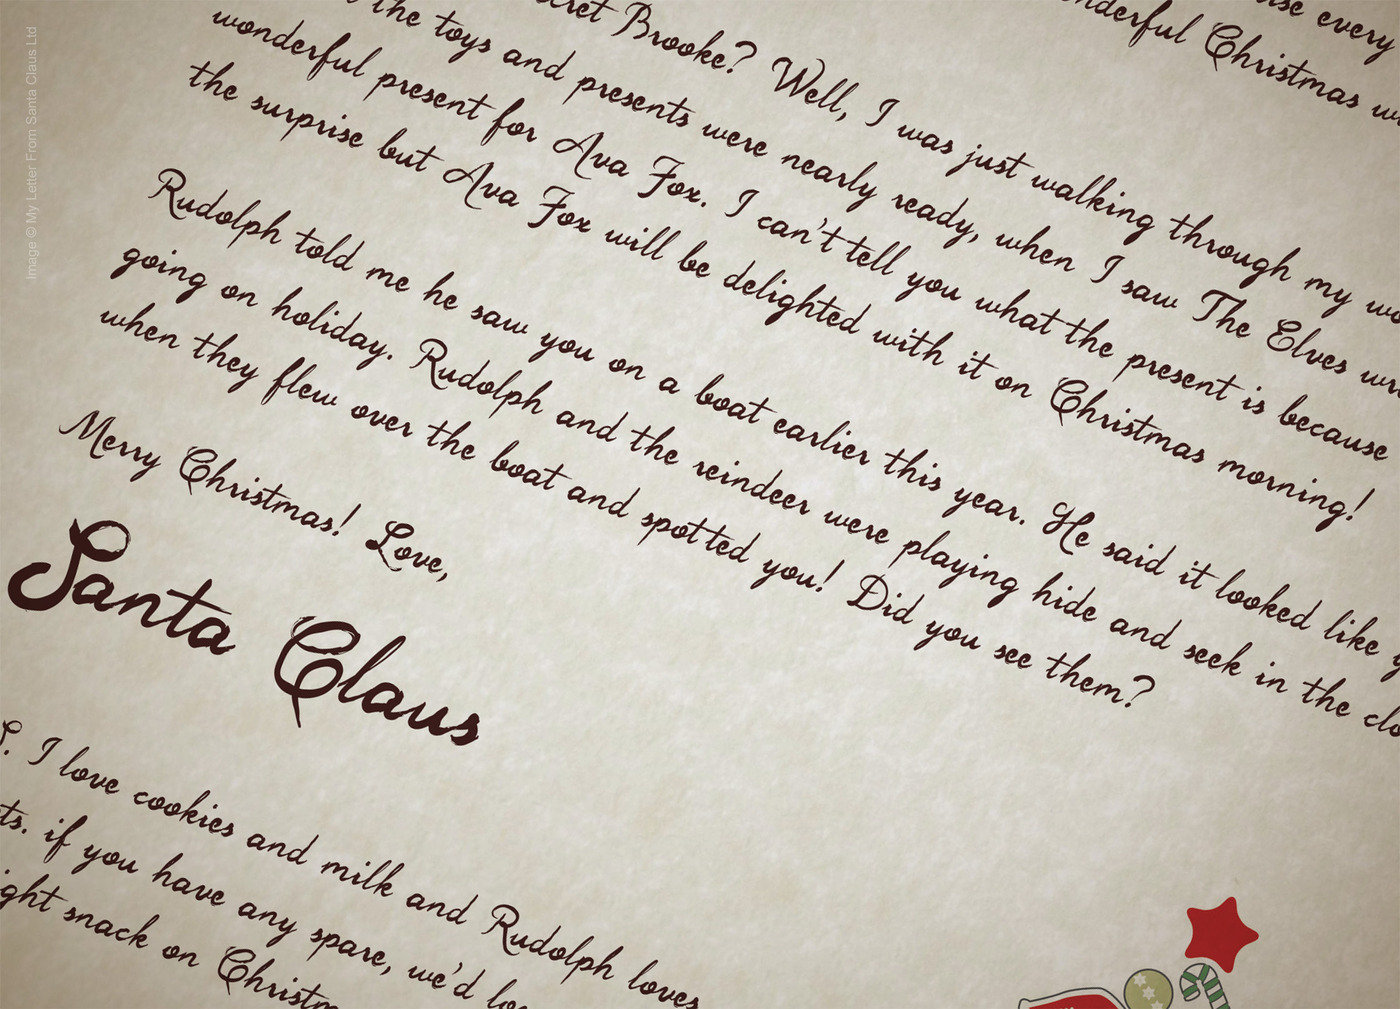 every
wonderful Christmas
Brooke? Well, I was just walking through my
the toys and presents were nearly ready, when I saw The Elves
wonderful present for Ava Fox. I can't tell you what the present is because
the surprise but Ava Fox will be delighted with it on Christmas morning!
Rudolph told me he saw you on a boat earlier this year. He said it looked like
going on holiday. Rudolph and the reindeer were playing hide and seek in the
when they flew over the boat and spotted you! Did you see them?
Merry Christmas! Love,
Santa Claus
I love cookies and milk and Rudolph loves
if you have any spare, we'd
snack on
Image © My Letter From Santa Claus Ltd